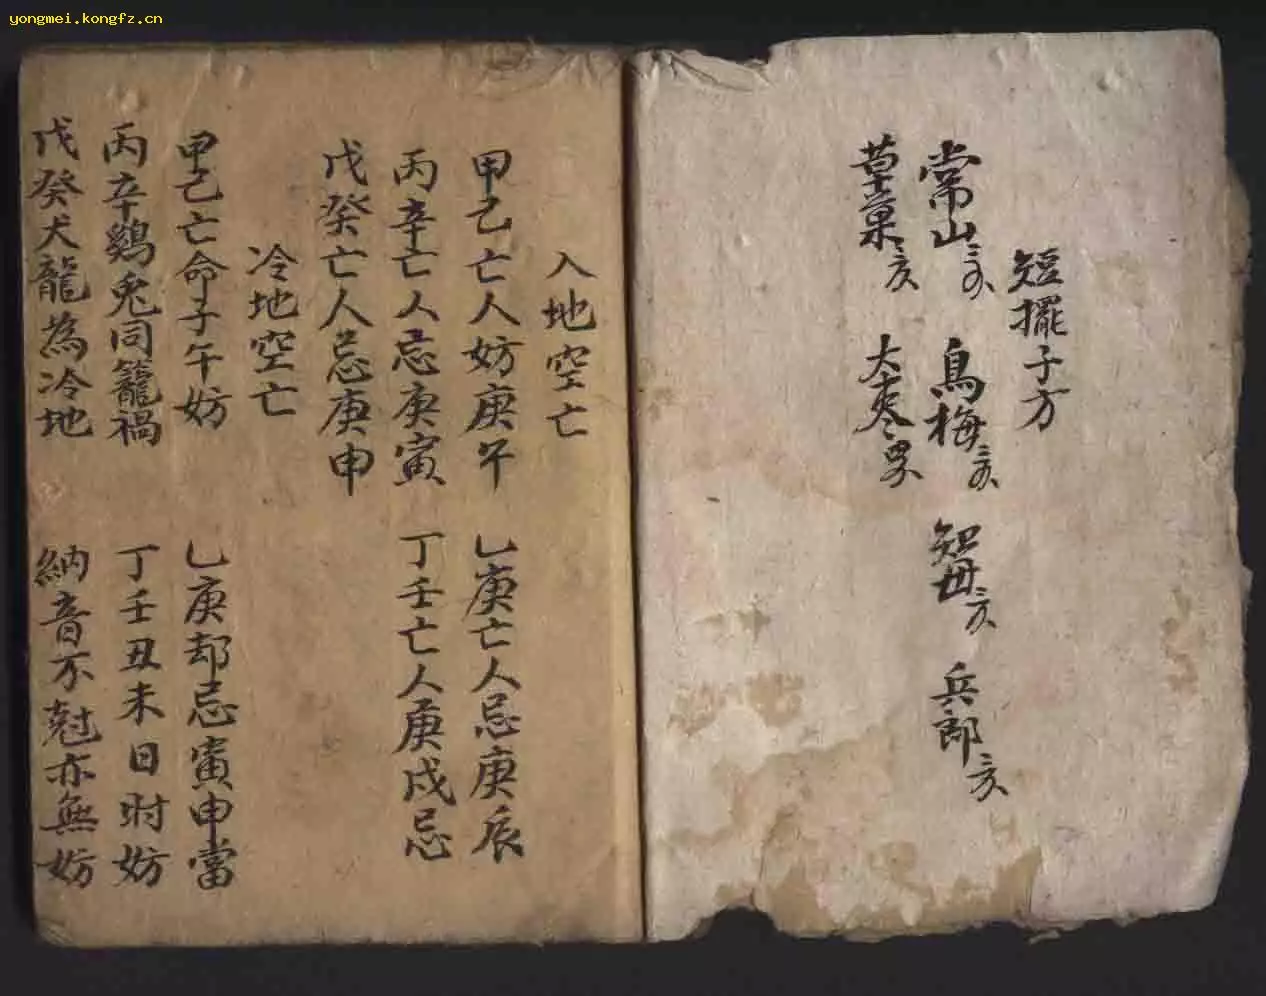 yongmei.kongfz.cn
短擺子方
常山 烏梅 知母 兵郎
草菓 大枣
入地空亡
甲己亡人妨庚午 乚庚亡人忌庚辰
丙辛亡人忌庚寅 丁壬亡人庚戍忌
戊癸亡人忌庚申
冷地空亡
甲己亡命子午妨 乚庚却忌寅申當
丙辛鷄兎同籠禍 丁壬丑未日时妨
戊癸犬龍為冷地 納音不尅亦無妨